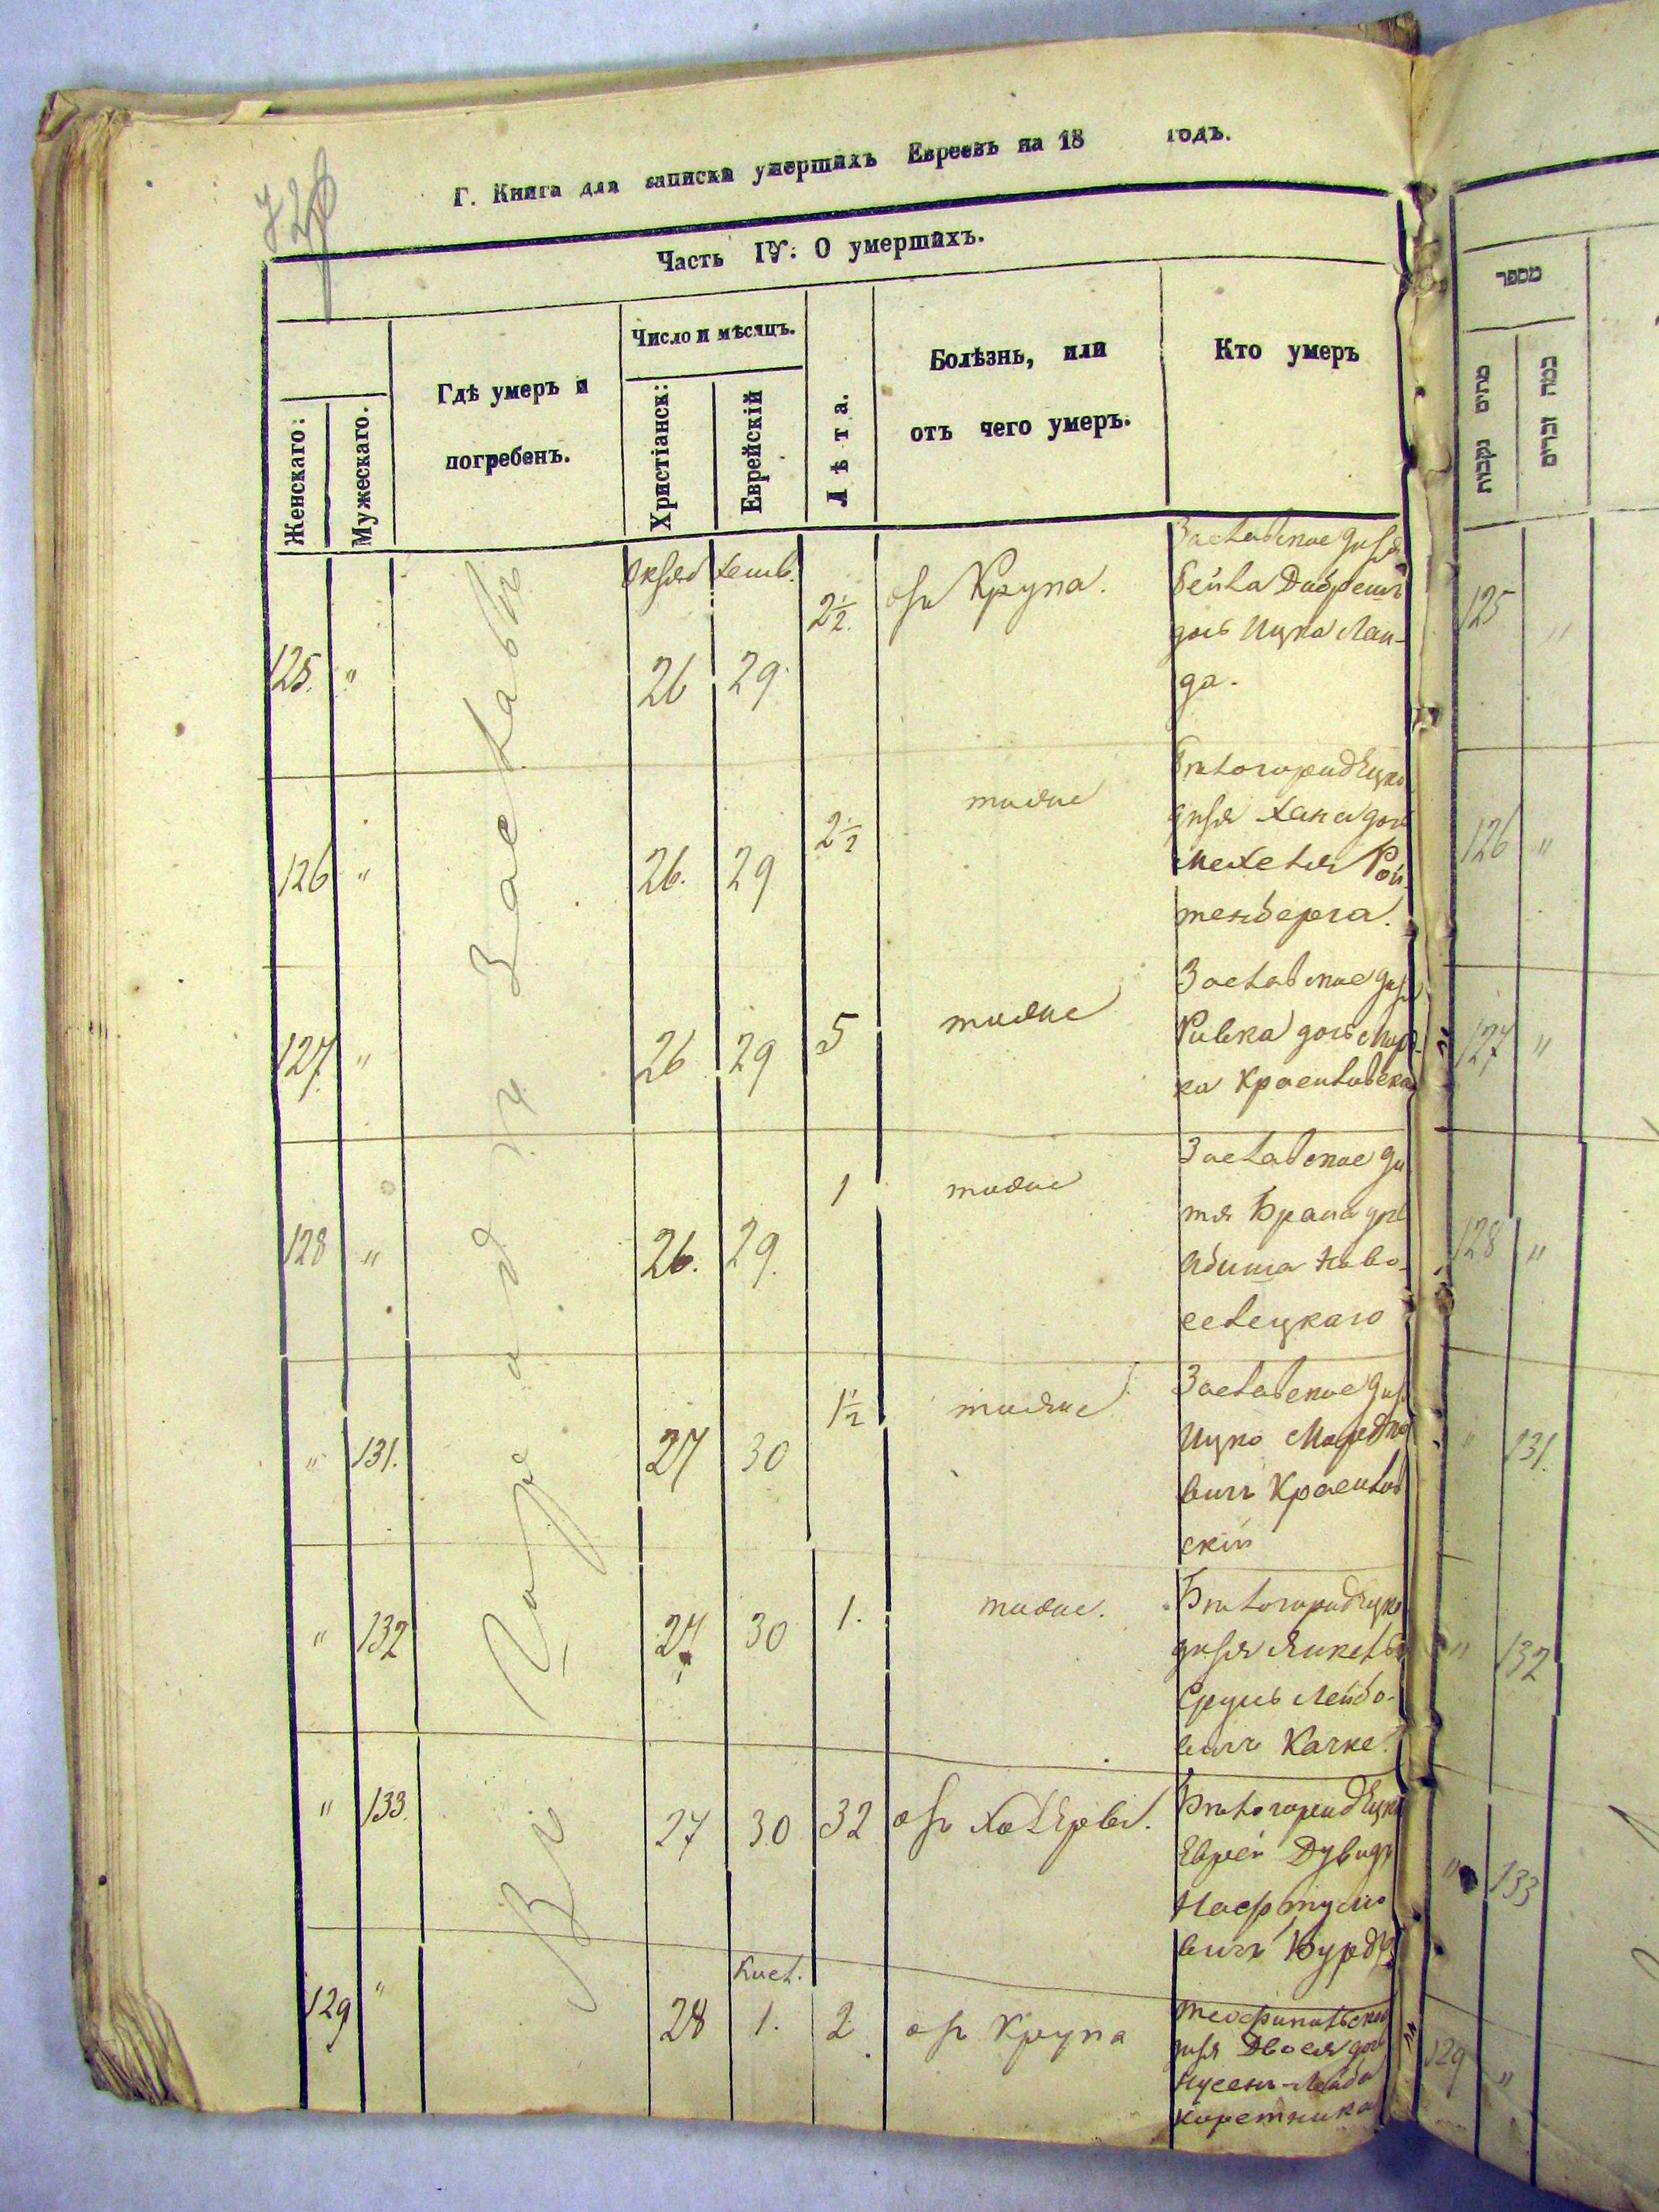 Г. Книга для записки умершихъ Евреевъ на 18 годъ.
Часть IV: О умершихъ.
Женскаго:
Мужескаго.
Гдѣ умеръ и
погребенъ.
Число и мѣсяцъ.
Христіанск:
Еврейскій
Лѣта.
Болѣзнь, или
отъ чего умеръ.
Кто умеръ
Въ Городѣ Заславлѣ
Октяб Хешв.
125. " 26 29 2½ отъ Крупа.
Заславское дитя
Бейла
дочь Ицка Лан-
да.
126 " 26. 29 2½ тоже
Бѣлогородецко
дитя Хана дочь
Мехеля Рой-
тенберга.
127. " 26 29 5 тоже
Заславское дитя
Ривка дочь Морд-
ка
128 " 26. 29. 1 тоже
Заславское ди
тя дочь
Ново-
селецкаго
" 131. 27 30 1½ тоже
Заславское дит
Ицко Мордко
вичъ
скій
" 132 27 30 1. тоже.
Бѣлогородецко
дитя Янкель
Сруль Лейбо-
вичъ Качке.
" 133. 27 30 32 отъ Холеры.
Бѣлогородецки
Еврей Дувидъ
вичъ
Кисл.
129 " 28 1. 2 отъ Крупа
Теофипольско
дитя Двося доч
Нусенъ-Лейба
Коретника
מספר
מתים נקבות
כמה זכרים
125 "
126 "
127 "
128 "
" 131.
" 132
" 133
129 "